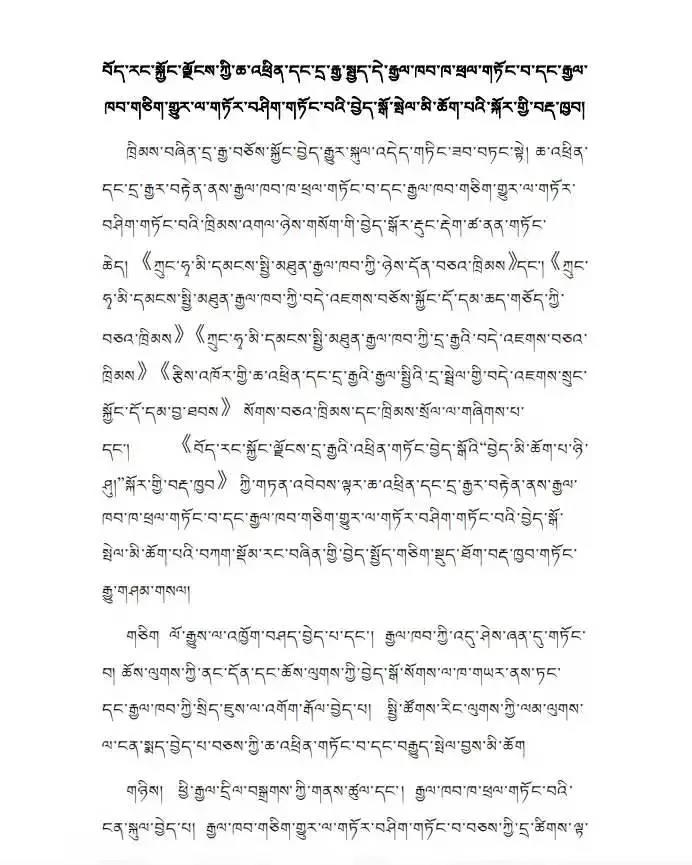 བོད་རང་སྐྱོང་ལྗོངས་ཀྱི་ཆ་འཕྲིན་དང་དྲ་རྒྱ་སྤྱད་དེ་རྒྱལ་ཁབ་ཁ་ཕྲལ་གཏོང་བ་དང་རྒྱལ་
ཁབ་གཅིག་གྱུར་ལ་གཏོར་བཤིག་གཏོང་བའི་བྱེད་སྒོ་སྤེལ་མི་ཆོག་པའི་སྐོར་གྱི་བརྡ་ཁྱབ།
ཁྲིམས་བཞིན་དྲ་རྒྱ་བཅོས་སྐྱོང་བྱེད་རྒྱུར་སྐུལ་འདེད་གཏིང་ཟབ་བཏང་སྟེ། ཆ་འཕྲིན་
དང་དྲ་རྒྱར་བརྟེན་ནས་རྒྱལ་ཁབ་ཁ་ཕྲལ་གཏོང་བ་དང་རྒྱལ་ཁབ་གཅིག་གྱུར་ལ་གཏོར་
བཤིག་གཏོང་བའི་ཁྲིམས་འགལ་ཉེས་གསོག་གི་བྱེད་སྒོར་རྡུང་རྡེག་ཚ་ནན་གཏོང་
ཆེད། 《ཀྲུང་ཧྭ་མི་དམངས་སྤྱི་མཐུན་རྒྱལ་ཁབ་ཀྱི་ཉེས་དོན་བཅའ་ཁྲིམས》དང་། 《ཀྲུང་
ཧྭ་མི་དམངས་སྤྱི་མཐུན་རྒྱལ་ཁབ་ཀྱི་བདེ་འཇགས་བཅོས་སྐྱོང་དོ་དམ་ཆད་གཅོད་ཀྱི་
བཅའ་ཁྲིམས》 《ཀྲུང་ཧྭ་མི་དམངས་སྤྱི་མཐུན་རྒྱལ་ཁབ་ཀྱི་དྲ་རྒྱའི་བདེ་འཇགས་བཅའ་
ཁྲིམས》 《རྩིས་འཁོར་གྱི་ཆ་འཕྲིན་དང་དྲ་རྒྱའི་རྒྱལ་སྤྱིའི་དྲ་སྦྲེལ་གྱི་བདེ་འཇགས་སྲུང་
སྐྱོང་དོ་དམ་བྱ་ཐབས》 སོགས་བཅའ་ཁྲིམས་དང་ཁྲིམས་སྲོལ་ལ་གཞིགས་པ་
དང་། 《བོད་རང་སྐྱོང་ལྗོངས་དྲ་རྒྱའི་འཕྲིན་གཏོང་བྱེད་སྒོའི“བྱེད་མི་ཆོག་པ་ཉི་
ཤུ།”སྐོར་གྱི་བརྡ་ཁྱབ》 ཀྱི་གཏན་འབེབས་ལྟར་ཆ་འཕྲིན་དང་དྲ་རྒྱར་བརྟེན་ནས་རྒྱལ་
ཁབ་ཁ་ཕྲལ་གཏོང་བ་དང་རྒྱལ་ཁབ་གཅིག་གྱུར་ལ་གཏོར་བཤིག་གཏོང་བའི་བྱེད་སྒོ་
སྤེལ་མི་ཆོག་པའི་བཀག་སྡོམ་རང་བཞིན་གྱི་བྱེད་སྤྱོད་གཅིག་སྡུད་ཐོག་བརྡ་ཁྱབ་གཏོང་
རྒྱུ་གཤམ་གསལ།
གཅིག ལོ་རྒྱུས་ལ་འཁྱོག་བཤད་བྱེད་པ་དང་། རྒྱལ་ཁབ་ཀྱི་འདུ་ཤེས་ཞན་དུ་གཏོང་
བ། ཆོས་ལུགས་ཀྱི་ནང་དོན་དང་ཆོས་ལུགས་ཀྱི་བྱེད་སྒོ་སོགས་ལ་ཁ་གཡར་ནས་ཏང་
དང་རྒྱལ་ཁབ་ཀྱི་སྲིད་ཇུས་ལ་འགོག་རྒོལ་བྱེད་པ། སྤྱི་ཚོགས་རིང་ལུགས་ཀྱི་ལམ་ལུགས་
ལ་ངན་སྨད་བྱེད་པ་བཅས་ཀྱི་ཆ་འཕྲིན་གཏོང་བ་དང་བརྒྱུད་སྤེལ་བྱས་མི་ཆོག
གཉིས། ཕྱི་རྒྱལ་དྲིལ་བསྒྲགས་ཀྱི་གནས་ཚུལ་དང་། རྒྱལ་ཁབ་ཁ་ཕྲལ་གཏོང་བའི་
ངན་སྐུལ་བྱེད་པ། རྒྱལ་ཁབ་གཅིག་གྱུར་ལ་གཏོར་བཤིག་གཏོང་བ་བཅས་ཀྱི་དྲ་ཚིགས་ལྟ་